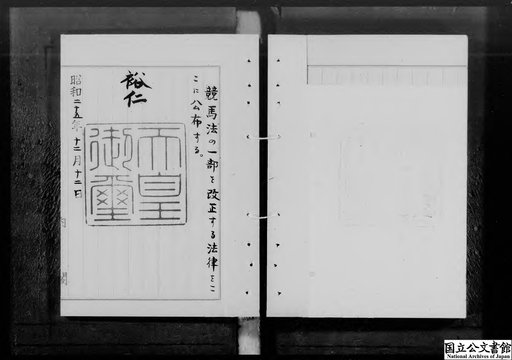 競馬法の一部を改正する法律をこ
こに公布する。
裕仁
天皇
御璽
昭和二十五年十二月十二日
内閣
国立公文書館
National Archives of Japan